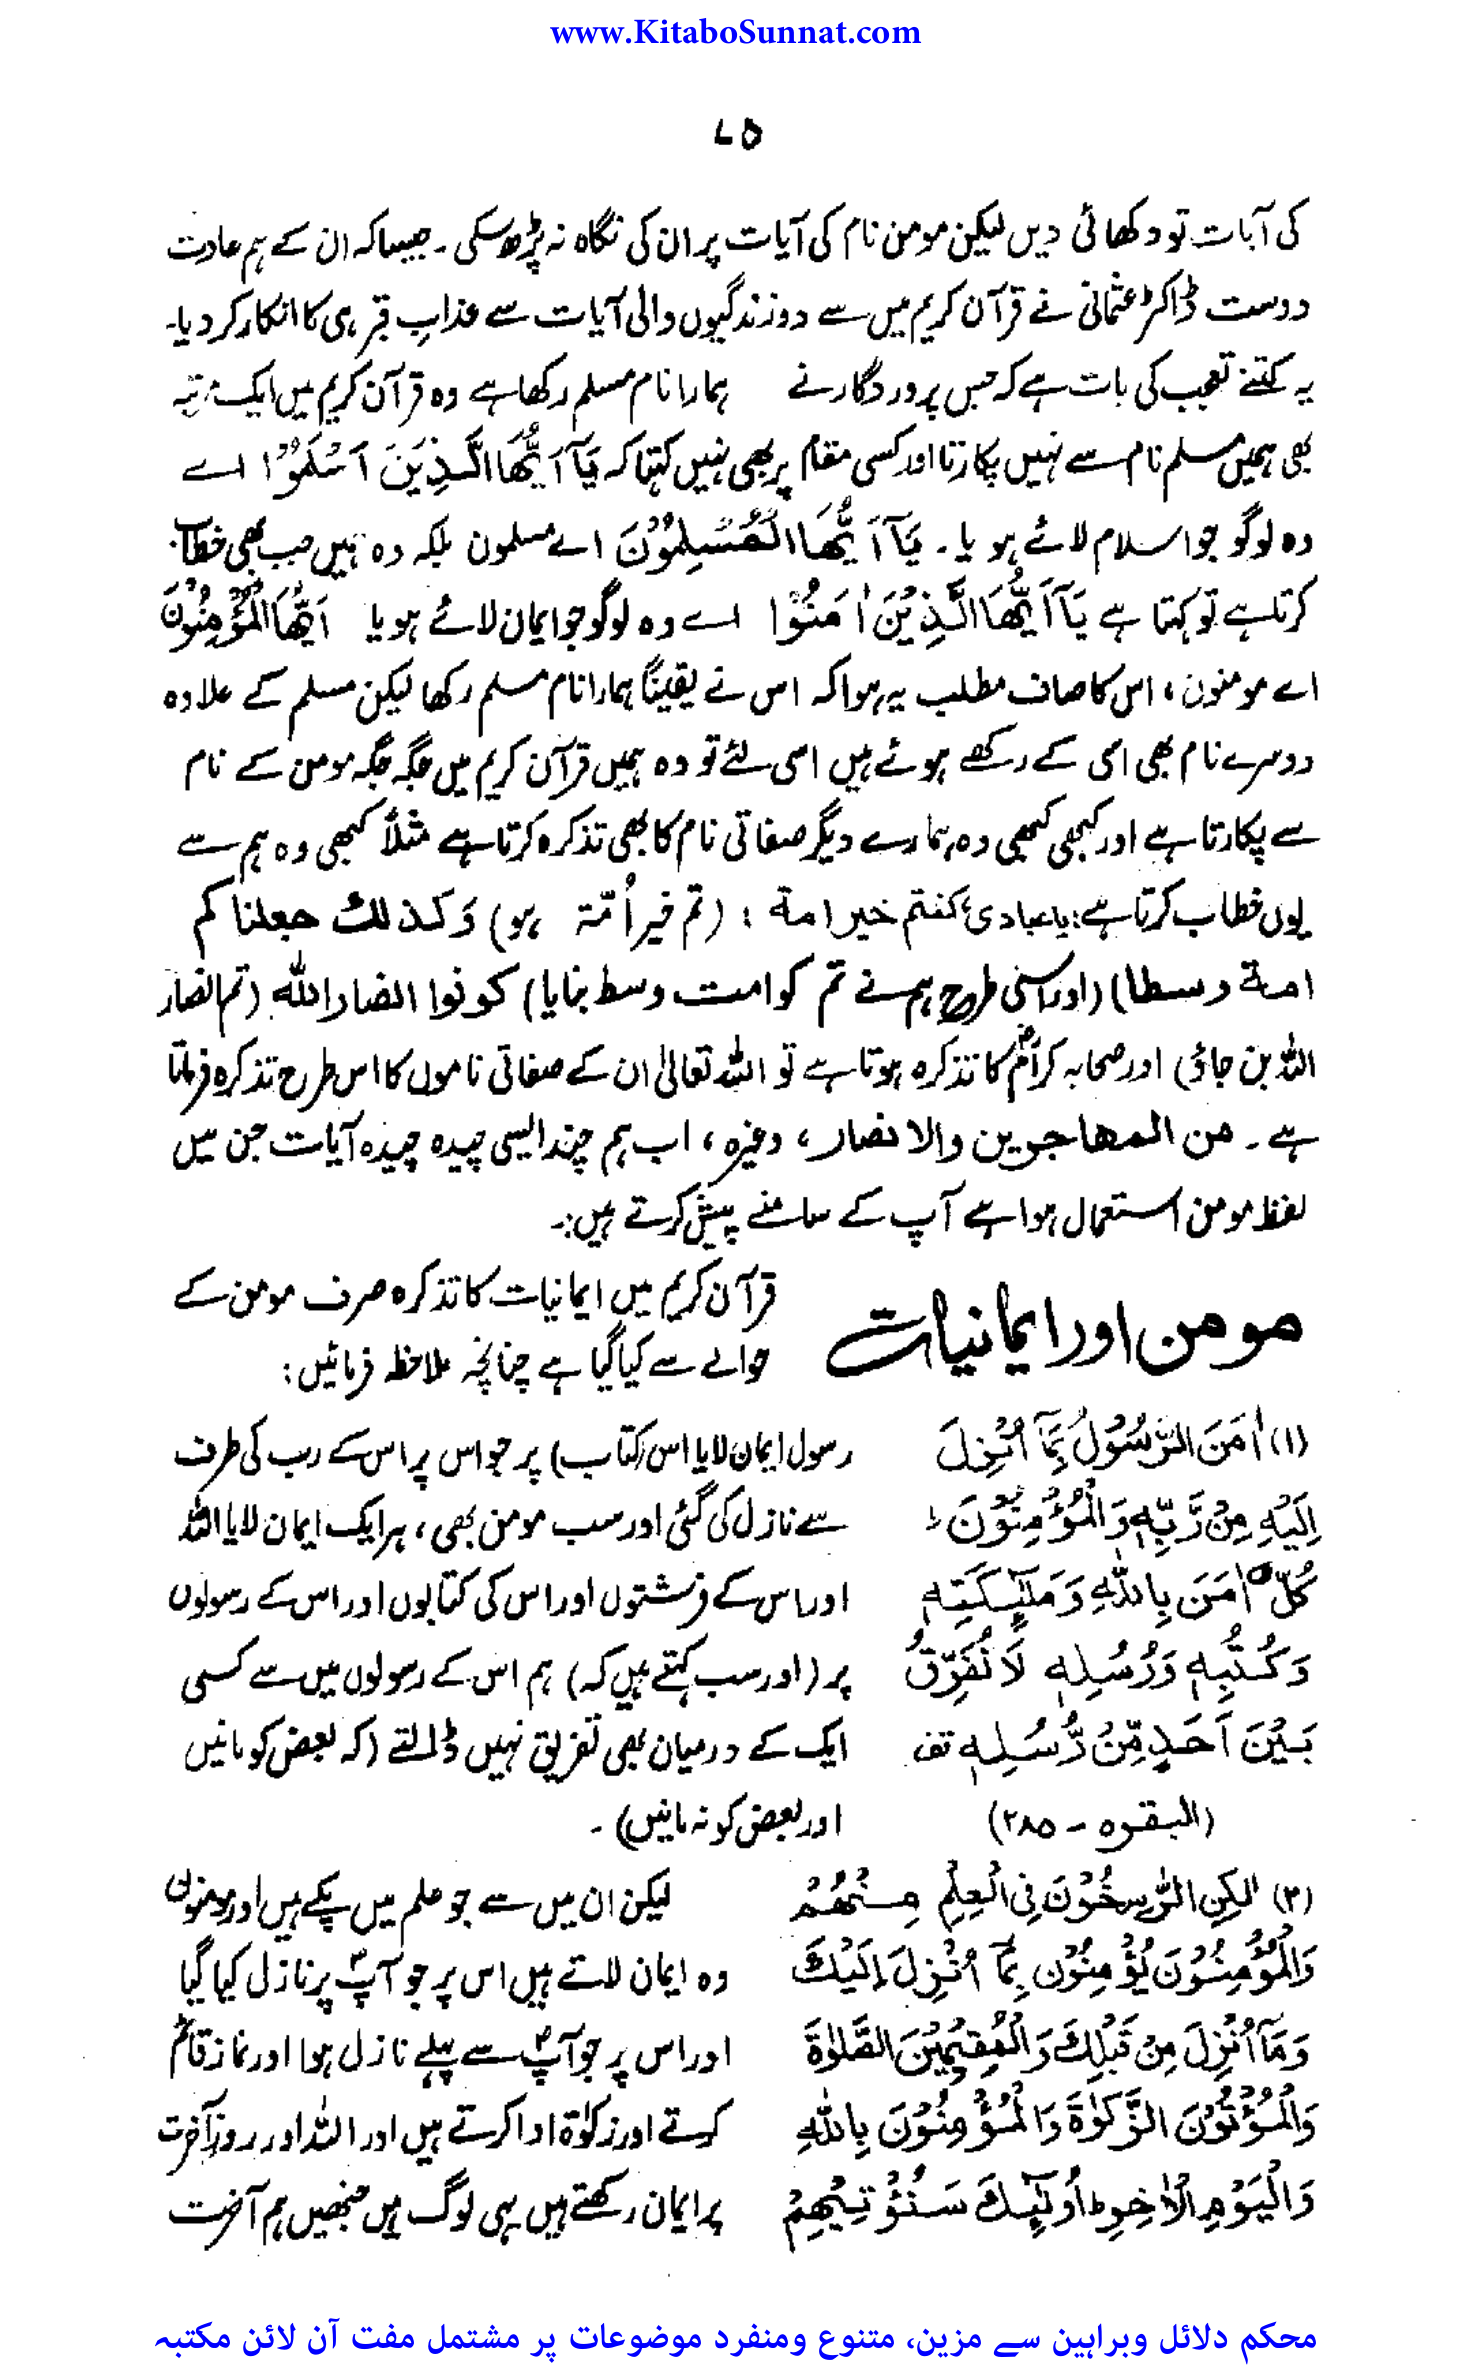 www.KitaboSunnat.com
۷۵
کی آیات تو دکھائی دیں لیکن مومن نام کی آیات پر ان کی نگاہ نہ پڑھ سکی۔ جیسا کہ ان کے ہم عادت
دوست ڈاکٹر عثمانی نے قرآن کریم میں سے دو زندگیوں والی آیات سے عذابِ قبر ہی کا انکار کر دیا۔
یہ کتنے تعجب کی بات ہے کہ جس پروردگار نے ہمارا نام مسلم رکھا ہے وہ قرآن کریم میں ایک مرتبہ
بھی ہمیں مسلم نام سے نہیں پکارتا اور کسی مقام پر بھی نہیں کہتا کہ یَآ اَیُّھَا الَّذِیْنَ اَسْلَمُوْا اے
وہ لوگو جو اسلام لائے ہو یا۔ یَآ اَیُّھَا الْمُسْلِمُوْنَ اے مسلمون بلکہ وہ ہمیں جب بھی خطاب
کرتا ہے تو کہتا ہے یَآ اَیُّھَا الَّذِیْنَ اٰمَنُوْا اے وہ لوگو جو ایمان لائے ہو یا اَیُّھَا الْمُؤْمِنُوْنَ
اے مومنون، اس کا صاف مطلب یہ ہوا کہ اس نے یقیناً ہمارا نام مسلم رکھا لیکن مسلم کے علاوہ
دوسرے نام بھی اسی کے رکھے ہوئے ہیں اسی لئے تو وہ ہمیں قرآن کریم میں جگہ جگہ مومن کے نام
سے پکارتا ہے اور کبھی کبھی وہ ہمارے دیگر صفاتی نام کا بھی تذکرہ کرتا ہے مثلاً کبھی وہ ہم سے
یوں خطاب کرتا ہے: یاعبادی، کنتم خیر امة : (تم خیر اُمّۃ ہو) وَکذلك جعلنا کم
امة وسطا) (اور اسی طرح ہم نے تم کو امت وسط بنایا) کونوا انصار اللہ (تم انصار
اللہ بن جاؤ) اور صحابہ کرامؓ کا تذکرہ ہوتا ہے تو اللہ تعالیٰ ان کے صفاتی ناموں کا اس طرح تذکرہ فرماتا
ہے۔ من المھاجرین والانصار، وغیرہ، اب ہم چند ایسی چیدہ چیدہ آیات جن میں
لفظ مومن استعمال ہوا ہے آپ کے سامنے پیش کرتے ہیں:۔
مومن اور ایمانیات
قرآن کریم میں ایمانیات کا تذکرہ صرف مومن کے
حوالے سے کیا گیا ہے چنانچہ ملاحظہ فرمائیں:
(۱) اٰمَنَ الرَّسُوْلُ بِمَآ اُنْزِلَ رسول ایمان لایا اس (کتاب) پر جو اس پر اس کے رب کی طرف
اِلَیْهِ مِنْ رَّبِّهٖ وَالْمُؤْمِنُوْنَ ط سے نازل کی گئی اور سب مومن بھی، ہر ایک ایمان لایا اللہ
کُلٌّ اٰمَنَ بِاللّٰهِ وَمَلٰٓئِکَتِهٖ اور اس کے فرشتوں اور اس کی کتابوں اور اس کے رسولوں
وَکُتُبِهٖ وَرُسُلِهٖ لَا نُفَرِّقُ پر (اور سب کہتے ہیں کہ) ہم اس کے رسولوں میں سے کسی
بَیْنَ اَحَدٍ مِّنْ رُّسُلِهٖ تف ایک کے درمیان بھی تفریق نہیں ڈالتے (کہ بعض کو مانیں
(البقره - ۲۸۵) اور بعض کو نہ مانیں)۔
(۲) لٰکِنِ الرّٰسِخُوْنَ فِی الْعِلْمِ مِنْھُمْ لیکن ان میں سے جو علم میں پکے ہیں اور مومنون
وَالْمُؤْمِنُوْنَ یُؤْمِنُوْنَ بِمَآ اُنْزِلَ اِلَیْكَ وہ ایمان لاتے ہیں اس پر جو آپؐ پر نازل کیا گیا
وَمَآ اُنْزِلَ مِنْ قَبْلِكَ وَالْمُقِیْمِیْنَ الصَّلٰوةَ اور اس پر جو آپؐ سے پہلے نازل ہوا اور نماز قائم
وَالْمُؤْتُوْنَ الزَّکٰوةَ وَالْمُؤْمِنُوْنَ بِاللّٰهِ کرتے اور زکوٰۃ ادا کرتے ہیں اور اللہ اور روزِ آخرت
وَالْیَوْمِ الْاٰخِرِ ط اُولٰٓئِكَ سَنُؤْتِیْھِمْ پر ایمان رکھتے ہیں یہی لوگ ہیں جنھیں ہم آخرت
محکم دلائل وبراہین سے مزین، متنوع ومنفرد موضوعات پر مشتمل مفت آن لائن مکتبہ